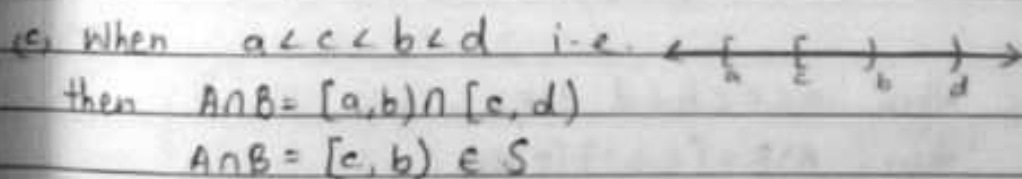 (c) When a < c < b < d i.e. a c b d
then A∩B = [a,b) ∩ [c,d)
A∩B = [c,b) ∈ S